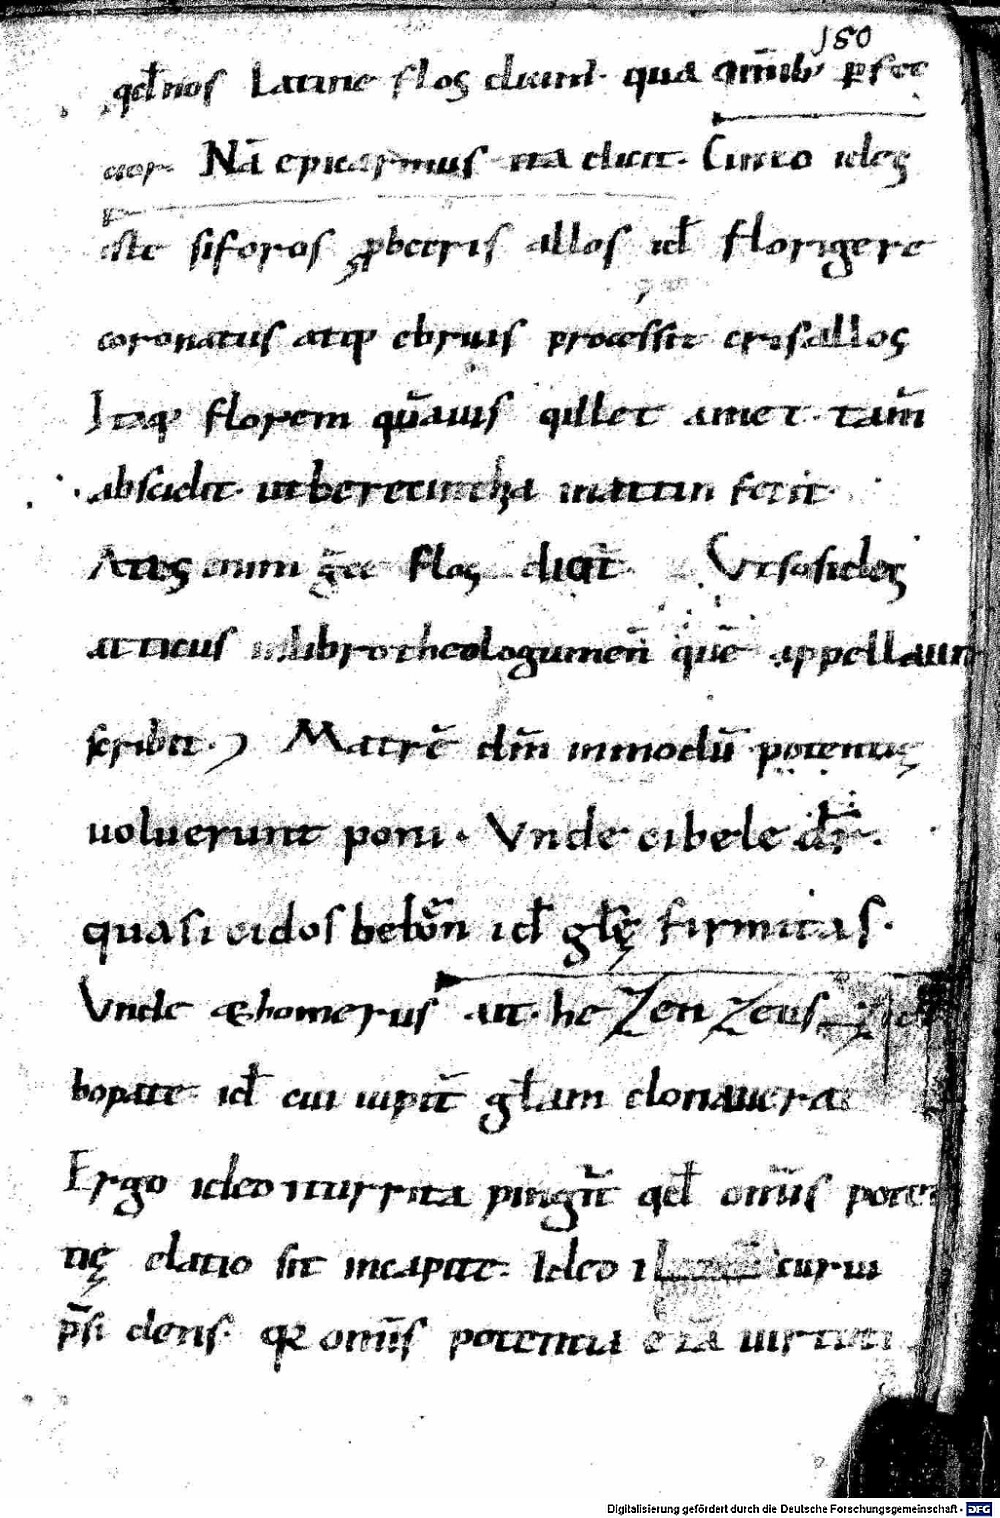 180
qđ nos Latine flos dicim̄. qua om̄ib; p̱fec
cior. Nā epicarmus ita dicit. Cinto ideş
este siforos p̱beeris allos iđ florigere
coronatus atq; ebriuis processit crisallos
Itaq; florem quāuis qillet amet. tam̄
abscidit. ut berecinthia in attin fecit.
Attis enim ḡce flos dicit̄ Ut sosicles
atticus in libro theologumen̄ quē appellauit
scribit. Matrē dm̄ in modū potentię
uoluerunt poni. Vnde cibele dr̄.
quasi cidos beloon id gl̄ę firmitas.
Vnde & homerus ait. he Zen Zeus
bopate id cui iupit̄ gl̄am donauerat
Ergo ideo turrita pingit̄ qđ om̄is poten
tię elatio sit in capite. Ideo curui
p̄si dens. qr om̄is potentia ē iā uirtuti
Digitalisierung gefördert durch die Deutsche Forschungsgemeinschaft - DFG